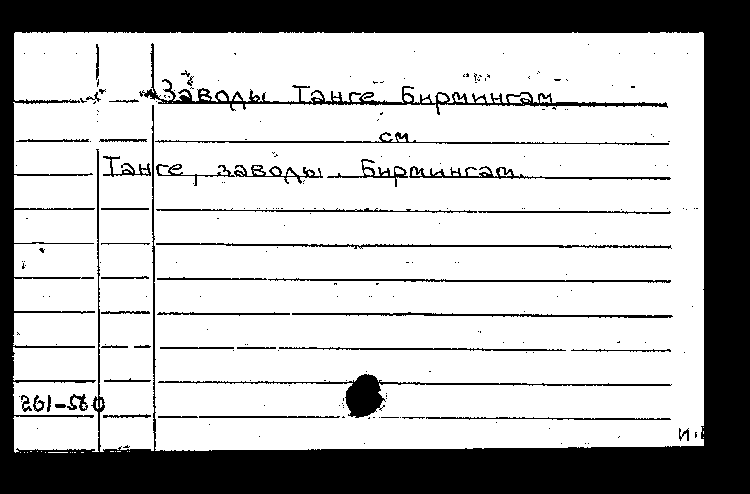 Заводы Танге Бирмингам
см.
Танге, заводы. Бирмингам.